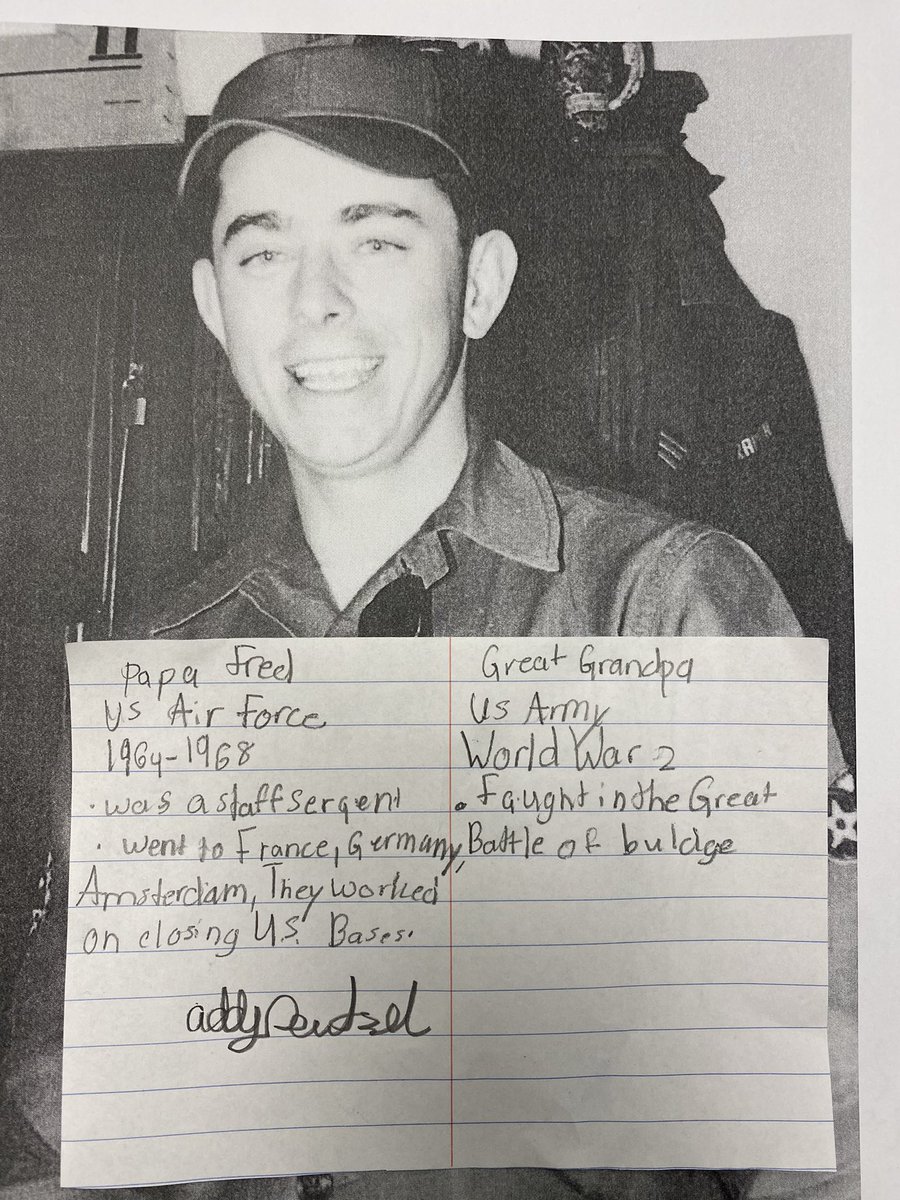 Papa Fred
US Air Force
1964-1968
· was a staff sergent
· went to France, Germany,
Amsterdam, They worked
on closing U.S. Bases.
addy
Great Grandpa
US Army
World War 2
• Faught in the Great
Battle of buldge